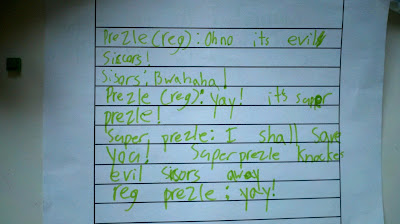 Prezle (reg): Oh no its evil
Siscors!
Sisors: Bwahaha!
Prezle (reg): yay! its super
prezle!
Super prezle: I shall save
you! Super prezle knockes
evil sisors away
reg prezle: yay!